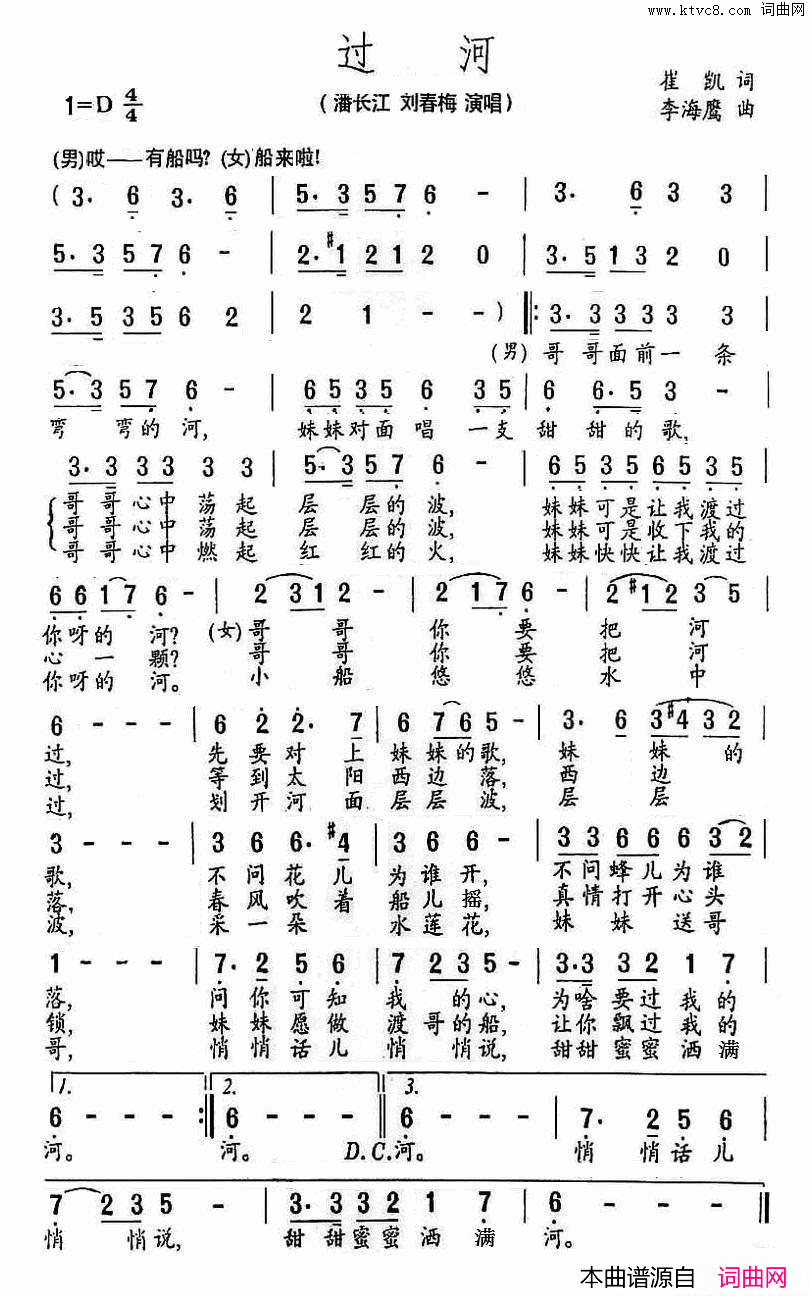 www.ktvc8.com 词曲网
过 河
1=D 4/4
(潘长江 刘春梅 演唱)
崔 凯 词
李海鹰 曲
(男)哎——有船吗? (女)船来啦!
( 3· 6 3· 6 | 5·3 5 7 6 - | 3· 6 3 3 |
5·3 5 7 6 - | 2·#1 2 1 2 0 | 3·5 1 3 2 0 |
3·5 3 5 6 2 | 2 1 - - ) |: 3·3 3 3 3 3 |
(男) 哥 哥 面 前 一 条
5·3 5 7 6 - | 6 5 3 5 6 3 5 | 6 6·5 3 - |
弯 弯的 河, 妹妹对面 唱 一支 甜 甜的歌,
3·3 3 3 3 3 | 5·3 5 7 6 - | 6 5 3 5 6 5 3 5 |
哥哥心中荡起 层 层的波, 妹妹可是让我渡过
哥哥心中荡起 层 层的波, 妹妹可是收下我的
哥哥心中燃起 红 红的火, 妹妹快快让我渡过
6 6 1 7 6 - | 2 3 1 2 - | 2 1 7 6 - | 2 #1 2 3 5 |
你呀的 河? (女)哥 哥 你 要 把 河
心 一 颗? 哥 哥 你 要 把 河
你呀的 河。 小 船 悠 悠 水 中
6 - - - | 6 2 2· 7 | 6 7 6 5 - | 3· 6 3 #4 3 2 |
过, 先 要 对 上 妹 妹的歌, 妹 妹 的
过, 等 到 太 阳 西 边 落, 西 边
过, 划 开 河 面 层 层 波, 层 层
3 - - - | 3 6 6· #4 | 3 6 6 - | 3 3 6 6 6 3 2 |
歌, 不 问 花 儿 为 谁 开, 不问蜂儿为谁
落, 春 风 吹 着 船 儿 摇, 真情打开心头
波, 采 一 朵 水 莲 花, 妹 妹 送 哥
1 - - - | 7· 2 5 6 | 7 2 3 5 - | 3·3 3 2 1 7 |
落, 问 你 可 知 我 的 心, 为啥要过我的
锁, 妹 妹 愿 做 渡 哥的船, 让你飘过我的
哥, 悄 悄 话 儿 悄 悄 说, 甜甜蜜蜜洒满
1. 2. 3.
6 - - - :| 6 - - - || 6 - - - | 7· 2 5 6 |
河。 河。 D.C.河。 悄 悄 话 儿
7 2 3 5 - | 3·3 3 2 1 7 | 6 - - - ||
悄 悄说, 甜甜蜜蜜洒 满 河。
本曲谱源自 词曲网